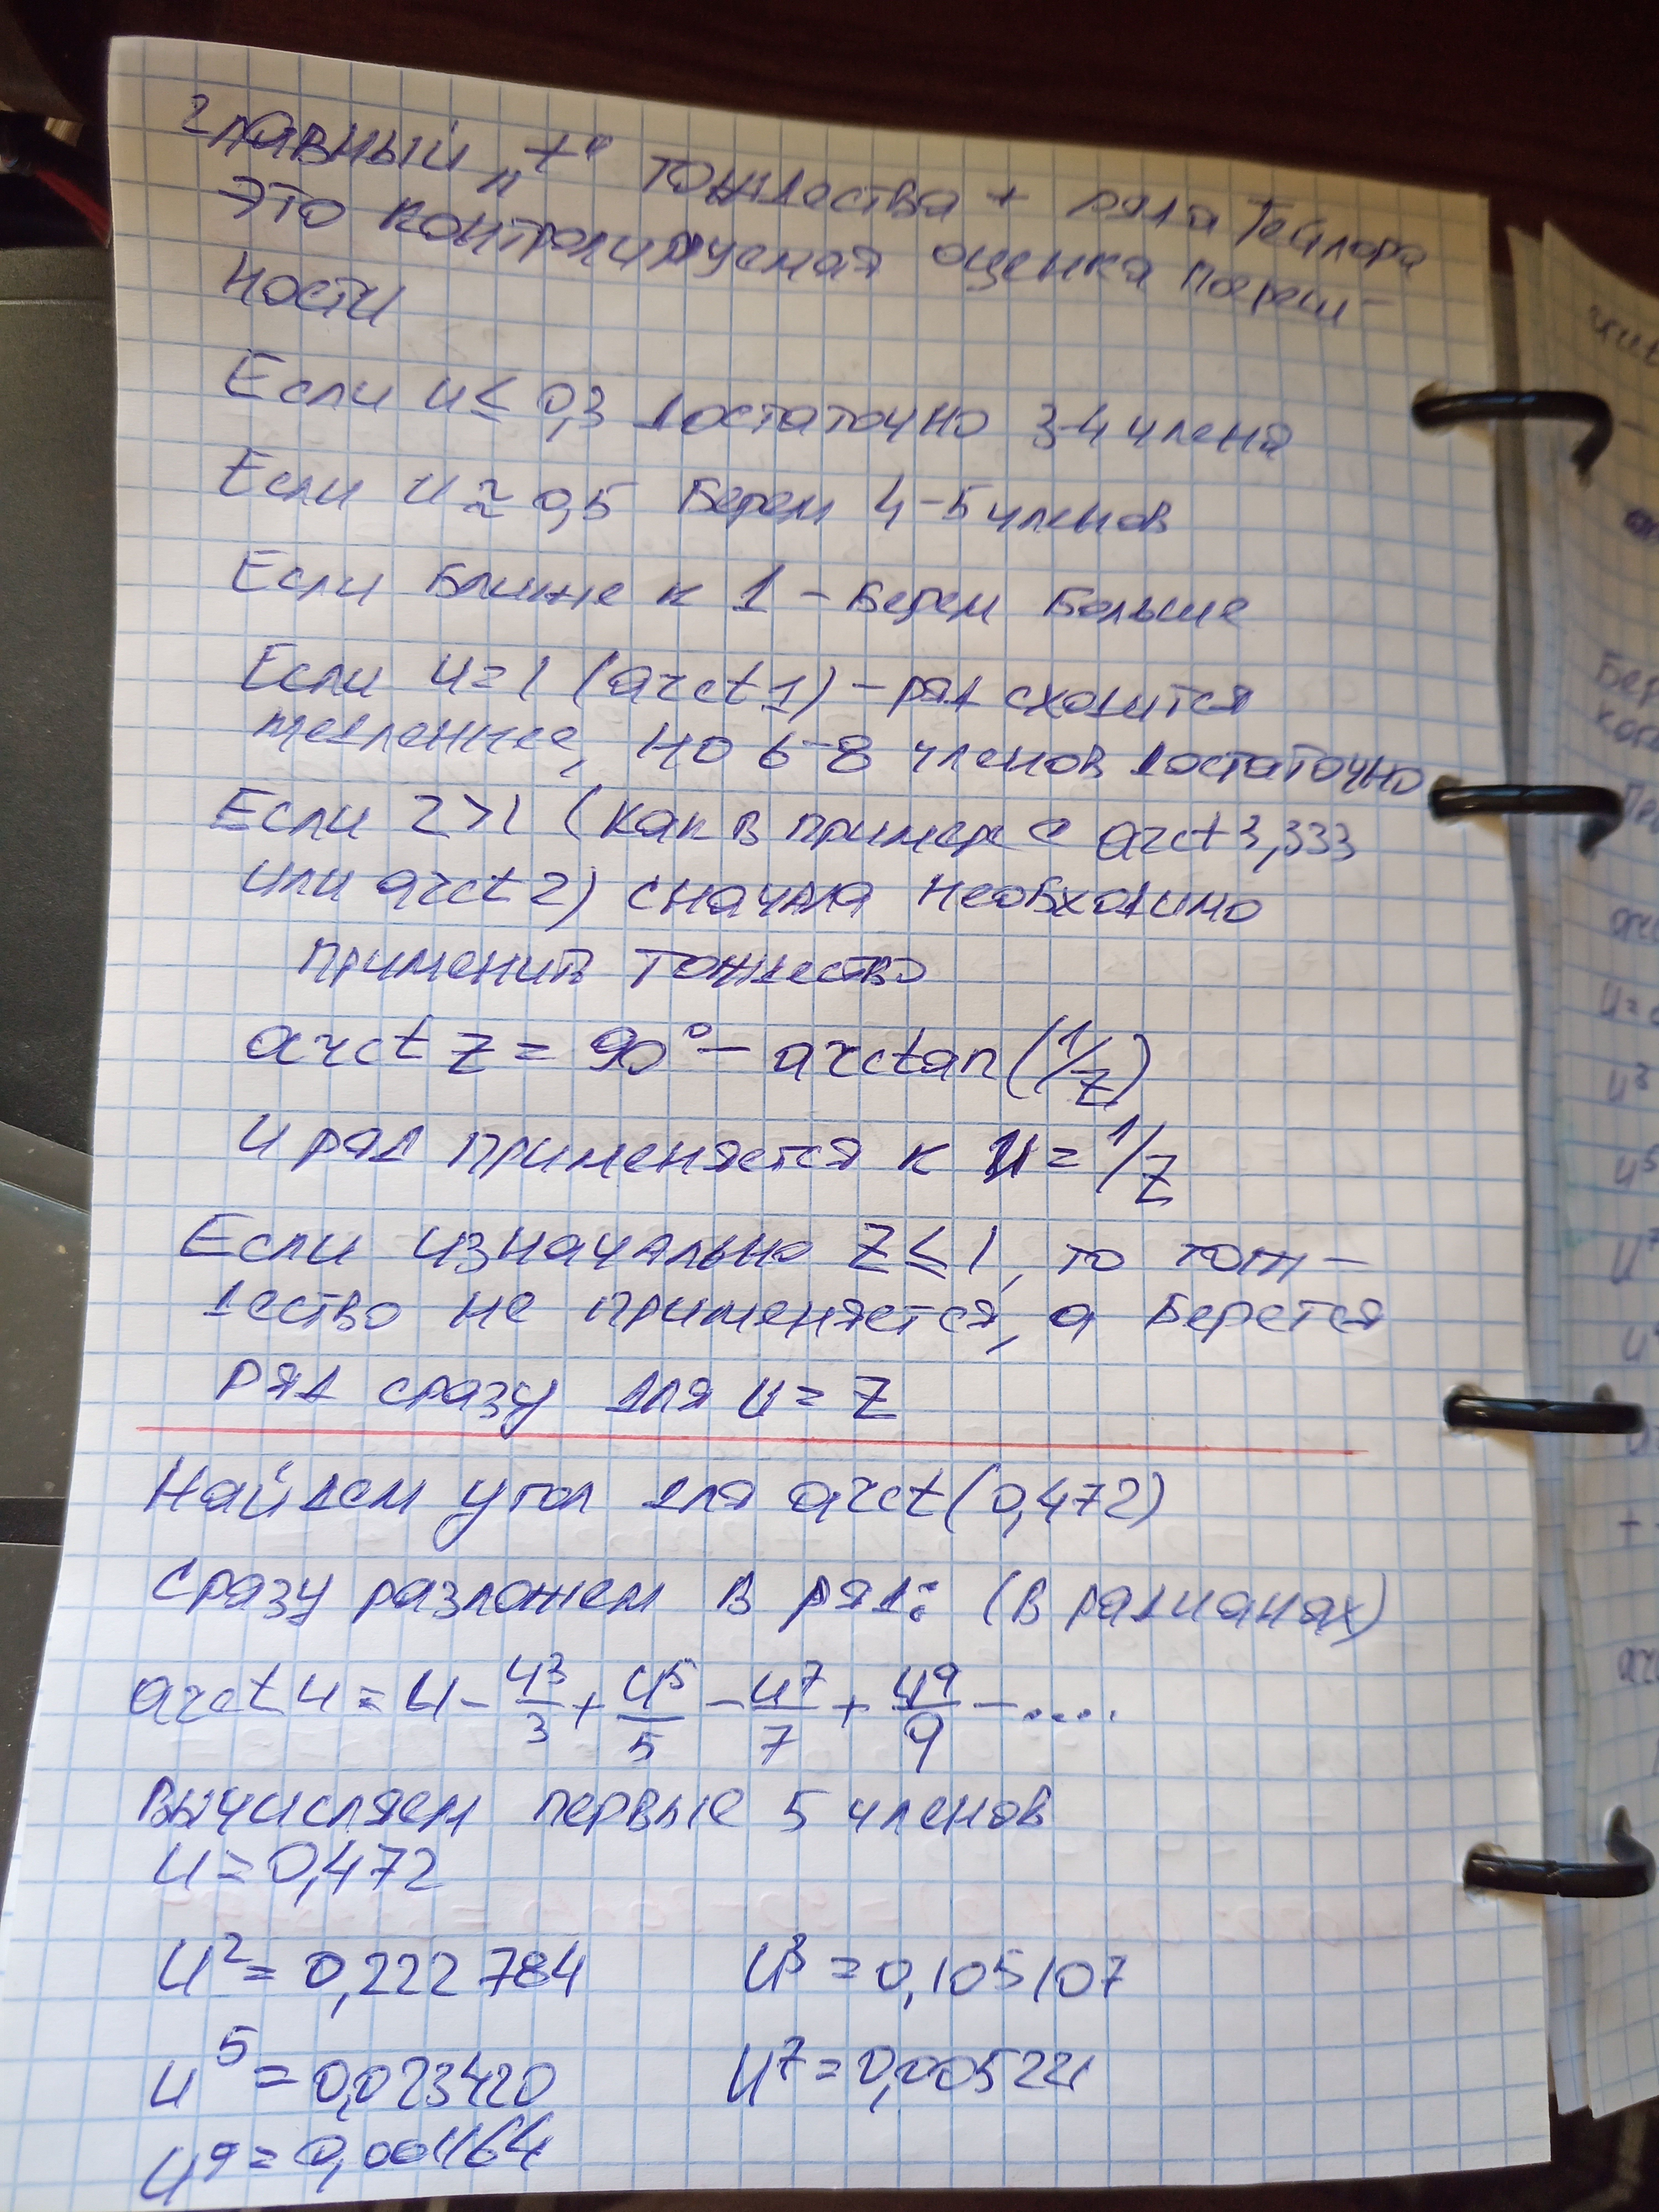 главный „+" тождества + ряда Тейлора
это контролируемая оценка погреш-
ности
Если u ≤ 0,3 достаточно 3-4 члена
Если u ≈ 0,5 берем 4-5 членов
Если ближе к 1 – берем больше
Если u=1 (arct 1) – ряд сходится
медленнее, но 6-8 членов достаточно
Если z>1 (как в примере arct 3,333
или arct 2) сначала необходимо
применить тождество
arct z = 90° – arctan(1/z)
и ряд применяется к u = 1/z
Если изначально z ≤ 1, то тож-
дество не применяется, а берется
ряд сразу для u = z
Найдем угол для arct(0,472)
Сразу разложем в ряд: (в радианах)
arct u = u - u³/3 + u⁵/5 - u⁷/7 + u⁹/9 - ....
Вычисляем первые 5 членов
u = 0,472
u² = 0,222784 u³ = 0,105107
u⁵ = 0,023420 u⁷ = 0,005221
u⁹ = 0,001164